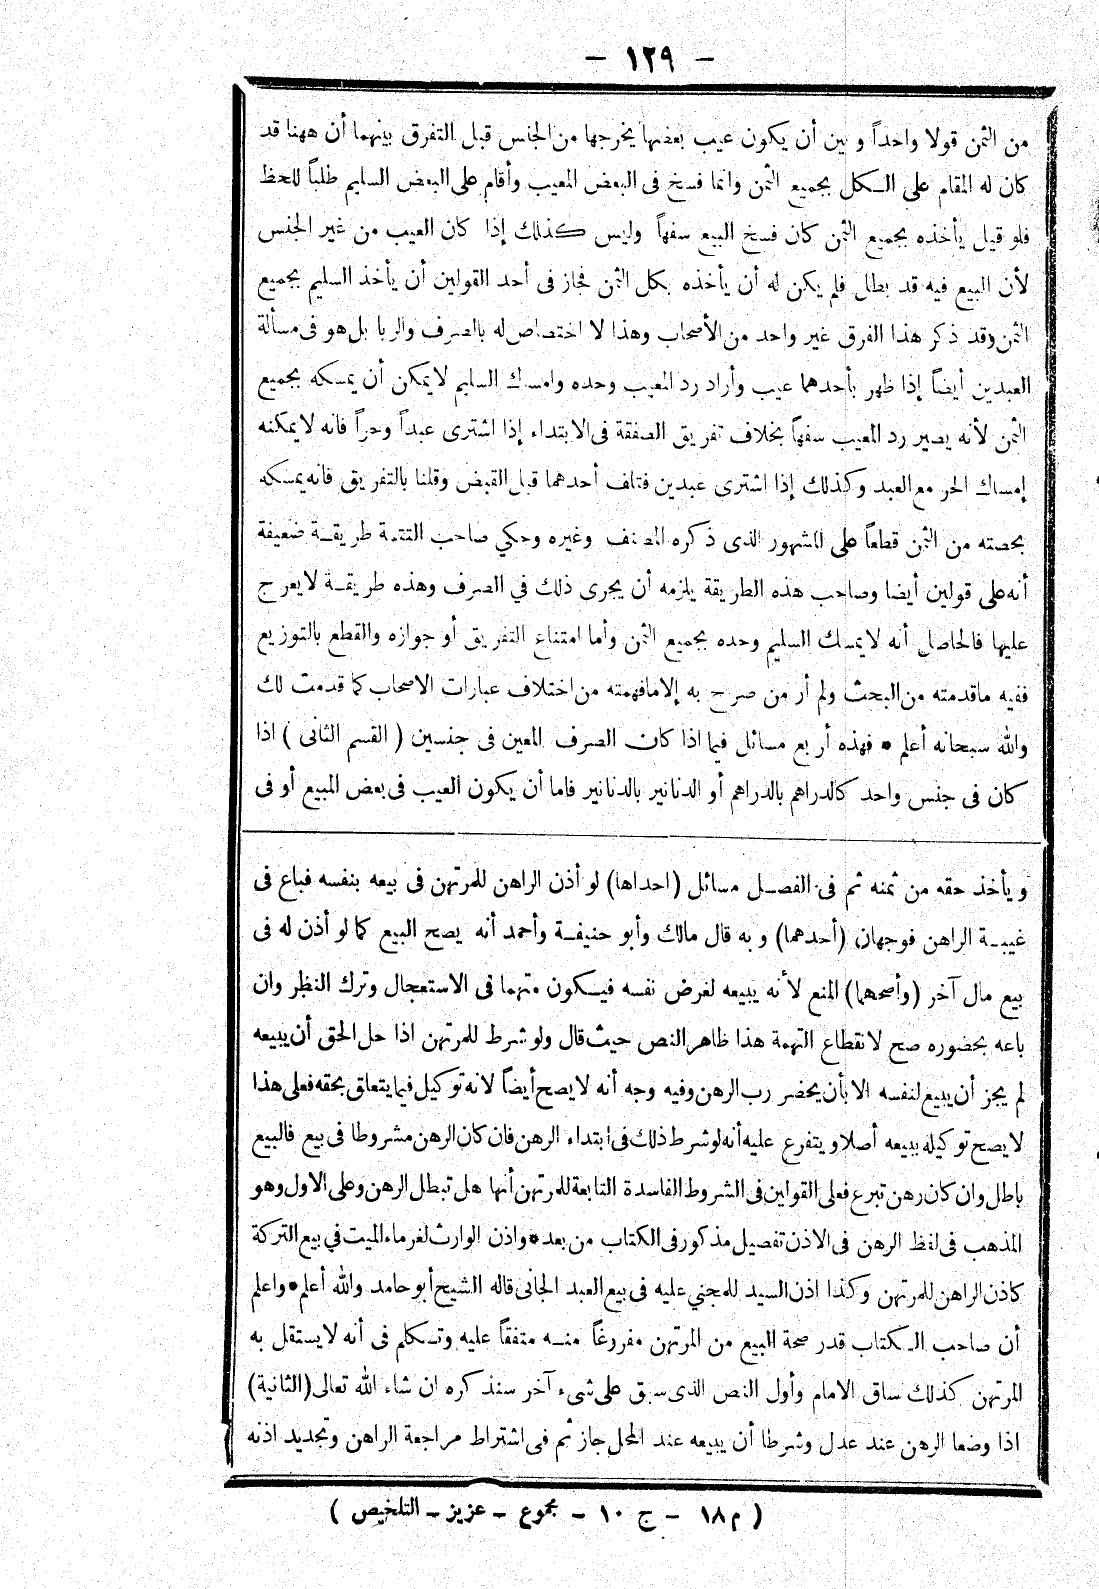 - ١٢٩ -
من الثمن قولا واحداً و بين أن يكون عيب بعضها يخرجها من الجنس قبل التفرق بينهما أن ههنا قد
كان له المقام على الكل بجميع الثمن وانما فسخ فى البعض المعيب وأقام على البعض السليم طلباً للحظ
فلو قيل يأخذه بجميع الثمن كان فسخ البيع سفهاً وليس كذلك إذا كان العيب من غير الجنس
لأن البيع فيه قد بطل فلم يكن له أن يأخذه بكل الثمن فجاز فى أحد القولين أن يأخذ السليم بجميع
الثمن وقد ذكر هذا الفرق غير واحد من الأصحاب وهذا لا اختصاص له بالصرف والربا بل هو فى مسألة
العبدين أيضاً إذا ظهر بأحدهما عيب وأراد رد المعيب وحده وامساك السليم لا يمكن أن يمسكه بجميع
الثمن لأنه يصير رد المعيب سفهاً بخلاف تفريق الصفقة فى الابتداء إذا اشترى عبداً وحراً فانه لا يمكنه
إمساك الحر مع العبد وكذلك إذا اشترى عبدين فتلف أحدهما قبل القبض وقلنا بالتفريق فانه يمسكه
بحصته من الثمن قطعاً على المشهور الذى ذكره المصنف وغيره وحكي صاحب التتمة طريقة ضعيفة
أنه على قولين أيضا وصاحب هذه الطريقة يلزمه أن يجرى ذلك في الصرف وهذه طريقة لا يعرج
عليها فالحاصل أنه لا يمسك السليم وحده بجميع الثمن وأما امتناع التفريق أو جوازه والقطع بالتوزيع
ففيه ماقدمته من البحث ولم أر من صرح به إلا مافهمته من اختلاف عبارات الاصحاب كما قدمت لك
والله سبحانه أعلم * فهذه أربع مسائل فيما اذا كان الصرف المعين فى جنسين ( القسم الثانى ) اذا
كان فى جنس واحد كالدراهم بالدراهم أو الدنانير بالدنانير فاما أن يكون العيب فى بعض المبيع أو فى
و يأخذ حقه من ثمنه ثم فى الفصل مسائل (احداها) لو أذن الراهن للمرتهن فى بيعه بنفسه فباع فى
غيبة الراهن فوجهان (أحدهما) و به قال مالك وأبو حنيفة وأحمد أنه يصح البيع كما لو أذن له فى
بيع مال آخر (وأصحهما) المنع لأنه يبيعه لغرض نفسه فيكون متهما فى الاستعجال وترك النظر وان
باعه بحضوره صح لانقطاع التهمة هذا ظاهر النص حيث قال ولو شرط للمرتهن اذا حل الحق أن يبيعه
لم يجز أن يبيع لنفسه الا بأن يحضر رب الرهن وفيه وجه أنه لا يصح أيضاً لانه توكيل فيما يتعلق بحقه فعلى هذا
لا يصح توكيله ببيعه أصلا و يتفرع عليه أنه لو شرط ذلك فى ابتداء الرهن فان كان الرهن مشروطا فى بيع فالبيع
باطل وان كان رهن تبرع فعلى القولين فى الشروط الفاسدة التابعة للمرتهن أنها هل تبطل الرهن وعلى الاول وهو
المذهب فى لفظ الرهن فى الاذن تفصيل مذكور فى الكتاب من بعد * واذن الوارث لغرماء الميت في بيع التركة
كاذن الراهن للمرتهن وكذا اذن السيد للمجني عليه فى بيع العبد الجانى قاله الشيخ أبو حامد والله أعلم * واعلم
أن صاحب الكتاب قدر صحة البيع من المرتهن مفروغاً منه متفقاً عليه وتكلم فى أنه لا يستقل به
المرتهن كذلك ساق الامام وأول النص الذى سبق على شىء آخر سنذكره ان شاء الله تعالى (الثانية)
اذا وضعا الرهن عند عدل وشرطا أن يبيعه عند المحل جاز ثم فى اشتراط مراجعة الراهن وتجديد اذنه
( م ١٨ - ج ١٠ - مجموع - عزيز - التلخيص )